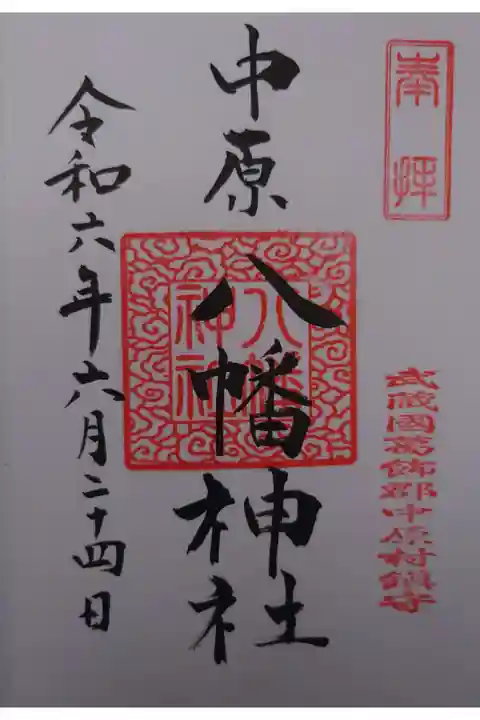 奉拝
武蔵國葛飾郡中原村鎮守
中原
八幡神社
八幡神社
令和六年六月二十四日